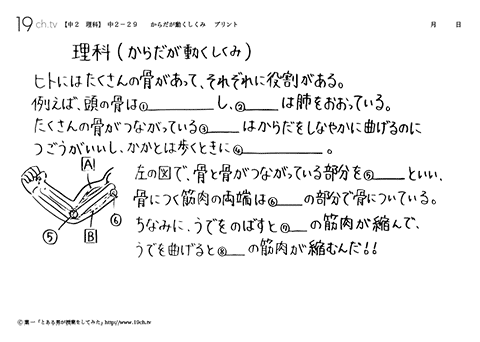 19ch.tv 【中2 理科】 中2-29 からだが動くしくみ プリント 月 日
理科(からだが動くしくみ)
ヒトにはたくさんの骨があって、それぞれに役割がある。
例えば、頭の骨は①______し、②____は肺をおおっている。
たくさんの骨がつながっている③____はからだをしなやかに曲げるのに
つごうがいいし、かかとは歩くときに④__________。
左の図で、骨と骨がつながっている部分を⑤____といい、
骨につく筋肉の両端は⑥____の部分で骨についている。
ちなみに、うでをのばすと⑦____の筋肉が縮んで、
うでを曲げると⑧____の筋肉が縮むんだ!!
A
B
⑤
⑥
©葉一「とある男が授業をしてみた」http://www.19ch.tv